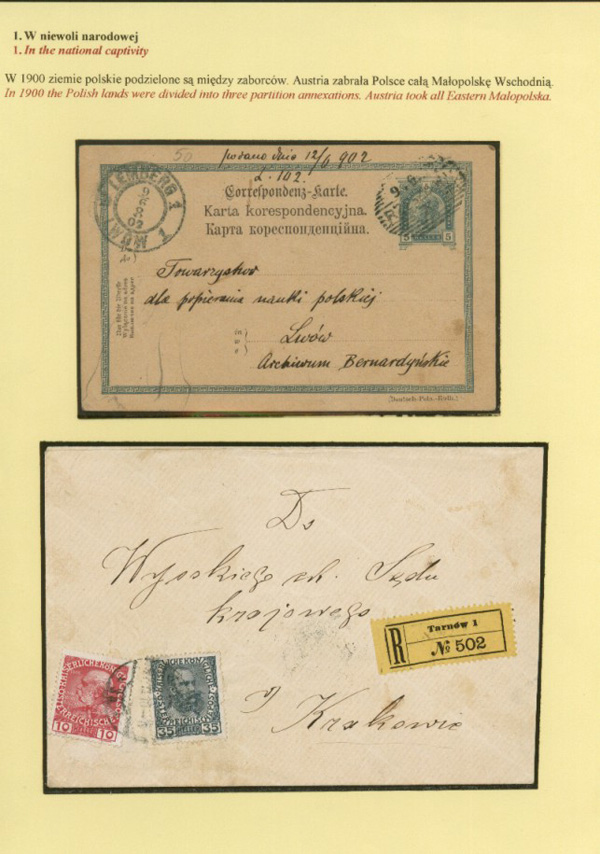 1. W niewoli narodowej
1. In the national captivity
W 1900 ziemie polskie podzielone są między zaborców. Austria zabrała Polsce całą Małopolskę Wschodnią.
In 1900 the Polish lands were divided into three partition annexations. Austria took all Eastern Malopolska.
50
podano dnia 12/6 902
L. 102.
LEMBERG 1
LWÓW 1
Correspondenz-Karte.
Karta korespondencyjna.
Карта кореспонденційна.
5 5
Towarzystwo
dla popierania nauki polskiej
Lwów
Archiwum Bernardyńskie
Deutsch-Poln.-Ruth.
Do
Wysokiego ck. Sądu
krajowego
w Krakowie
R
Tarnów 1
№ 502
10 10
35 35